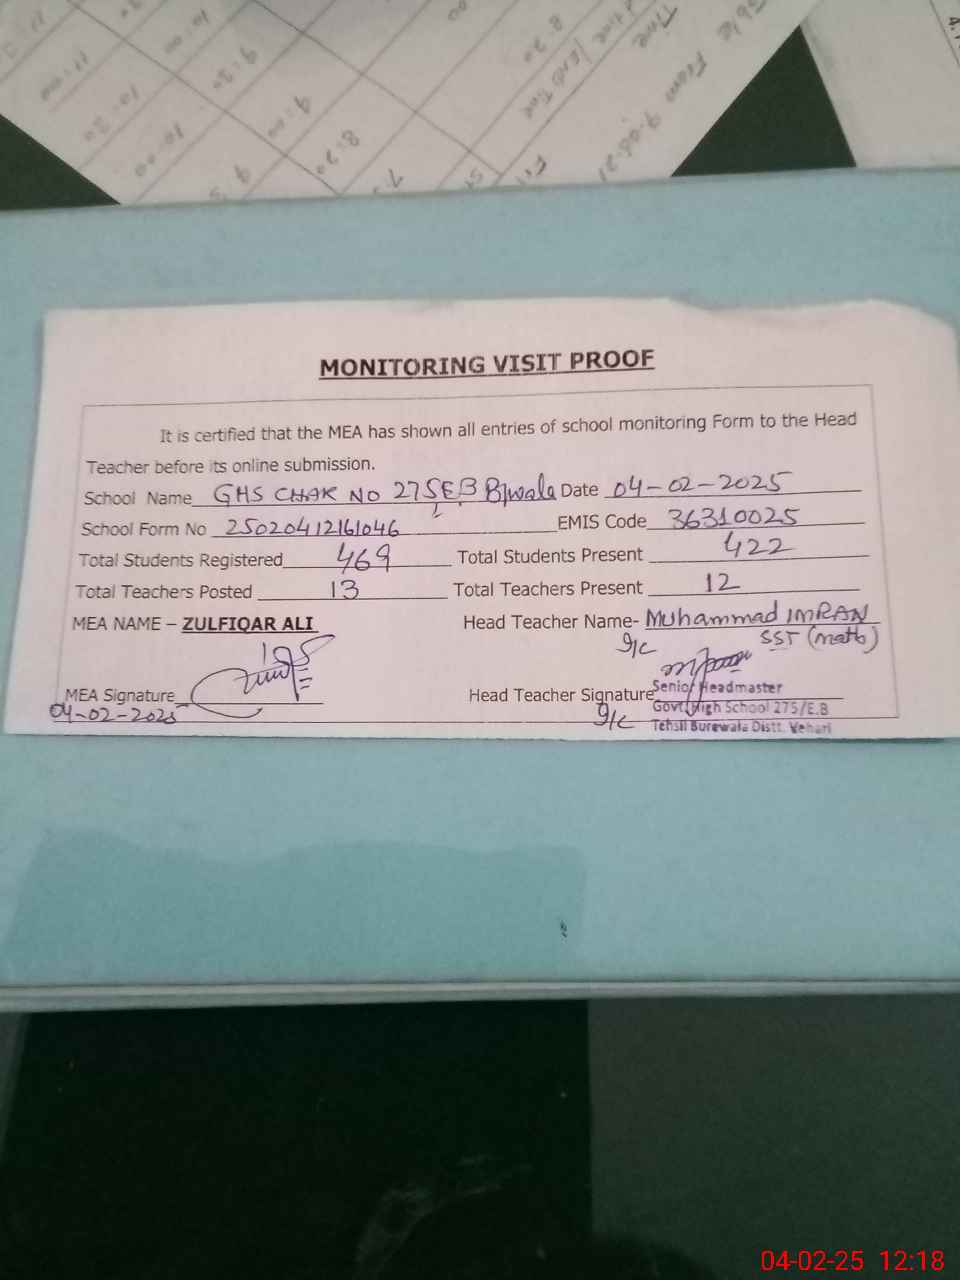 Table From 9-05-21
Time
8:30
9:00
9:30
10:00
10:30
11:00
8:30
9:30
10:00
MONITORING VISIT PROOF
It is certified that the MEA has shown all entries of school monitoring Form to the Head
Teacher before its online submission.
School Name GHS CHAK NO 275 E.B B/wala Date 04-02-2025
School Form No 25020412161046 EMIS Code 36310025
Total Students Registered 469 Total Students Present 422
Total Teachers Posted 13 Total Teachers Present 12
MEA NAME – ZULFIQAR ALI Head Teacher Name- Muhammad IMRAN
I/C SST (math)
MEA Signature Head Teacher Signature Senior Headmaster
04-02-2025 I/C Govt. High School 275/E.B
Tehsil Burewala Distt. Vehari
04-02-25 12:18